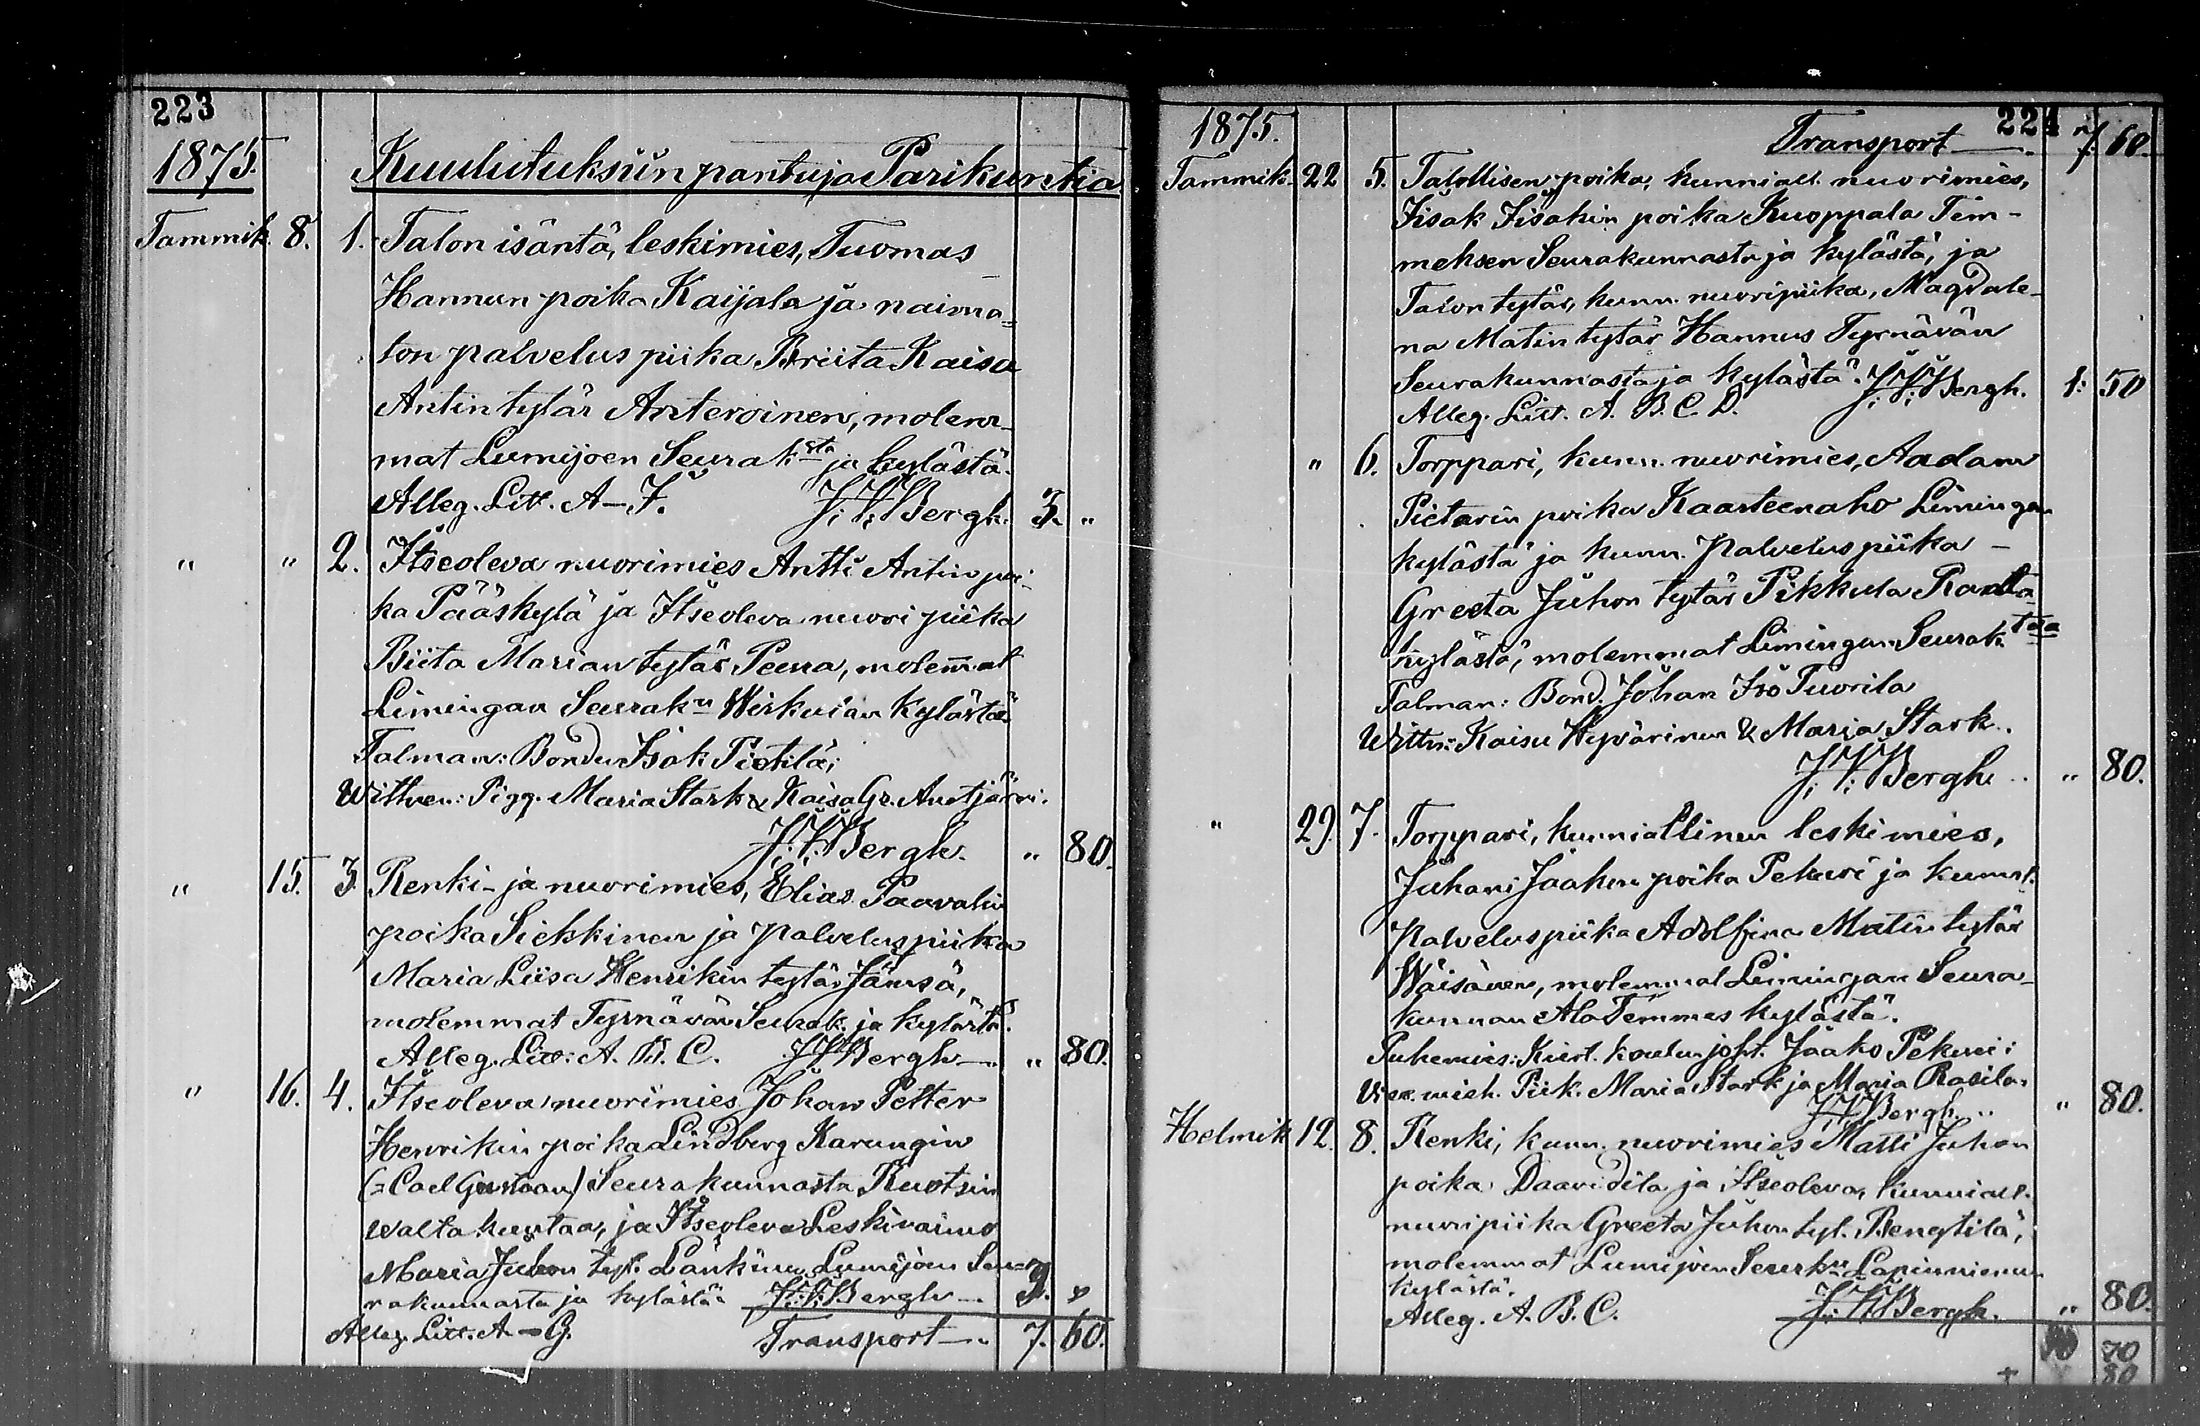 223
1875. Kuulutuksiin pantuja Parikuntia
Tammik. 8. 1. Talon isäntä, leskimies, Tuomas
Hannun poika Kaijala ja naima=
ton palvelus piika Briita Kaisa
Antin tytär Anteroinen, molem-
mat Lumijoen Seurak:sta ja kylästä.
Alleg. Litt. A–F. J. V. Bergh. 3. "
" " 2. Itseoleva nuorimies Antti Antin poi-
ka Pääskylä ja Itseoleva nuori piika
Biita Marian tytär Peura, molemat
Limingan Seurakn Wirkulan Kylästä
Talman: Bonden Isak Pietilä;
Wittnen: Pigg. Maria Stark & Kaisa Gr.
J. V. Bergh. " 80.
" 15. 3. Renki- ja nuorimies, Elias Paavalin
poika Siekkinen ja Palveluspiika
Maria Liisa Henrikin tytär Jämsä,
molemmat Tyrnävän Seurak. ja kylästä.
Alleg. Litt: A. B. C. J V Bergh " 80.
" 16. 4. Itseoleva nuorimies Johan Petter
Henrikin poika Lindberg Karungin
(=Carl Gustaav) Seurakunnasta Ruotsin
waltakuntaa, ja Itseoleva Leskivaimo
Maria Juhon tyt. Länkinen Lumijoen Seu-
rakunnasta ja kylästä J. V. Bergh 3. "
Alleg. Litt. A–G. Transport 7. 60.
224
1875. Transport 7. 60.
Tammik. 22 5. Talollisen poika, kunniall. nuorimies,
Iisak Iisakin poika Kuoppala Tem-
meksen Seurakunnasta ja kylästä, ja
Talon tytär, kunn. nuoripiika, Magdale-
na Matin tytär Hannus Tyrnävän
Seurakunnasta ja kylästä. J. V. Bergh. 1: 50
Alleg. Litt. A. B. C. D.
" 6. Torppari, kunn. nuorimies, Aadam
Pietarin poika Kaarteenaho Limingan
kylästä ja kunn. Palveluspiika –
Greeta Juhon tytär Pikkula Ranta
kylästä, molemmat Limingan Seurak.
Talman: Bond. Johan Iso Tuorila
Wittn: Kaisa Hyvärinen & Maria Stark.
J. V. Bergh " 80.
" 29. 7. Torppari, kunniallinen leskimies,
Juhani Jaakon poika Pekuri ja kunn.
Palveluspiika Adolfina Matin tytär
Wäisänen, molemmat Limingan Seura-
kunnan Ala Temmes kylästä.
Puhemies: Kiert. koulun joht. Jaako Pekuri:
Vier. mieh. Piik. Maria Stark ja Maria Rasila.
J V Bergh. " 80.
Helmik 12. 8. Renki, kunn. nuorimies Matti Juhon
poika Daavidila ja Itseoleva, kunniall.
nuoripiika Greeta Juhon tyt. Bengtilä,
molemmat Lumijoen Seurkn Lapinniemen
kylästä.
Alleg. A. B. C. J. V. Bergh. " 80.
70
80